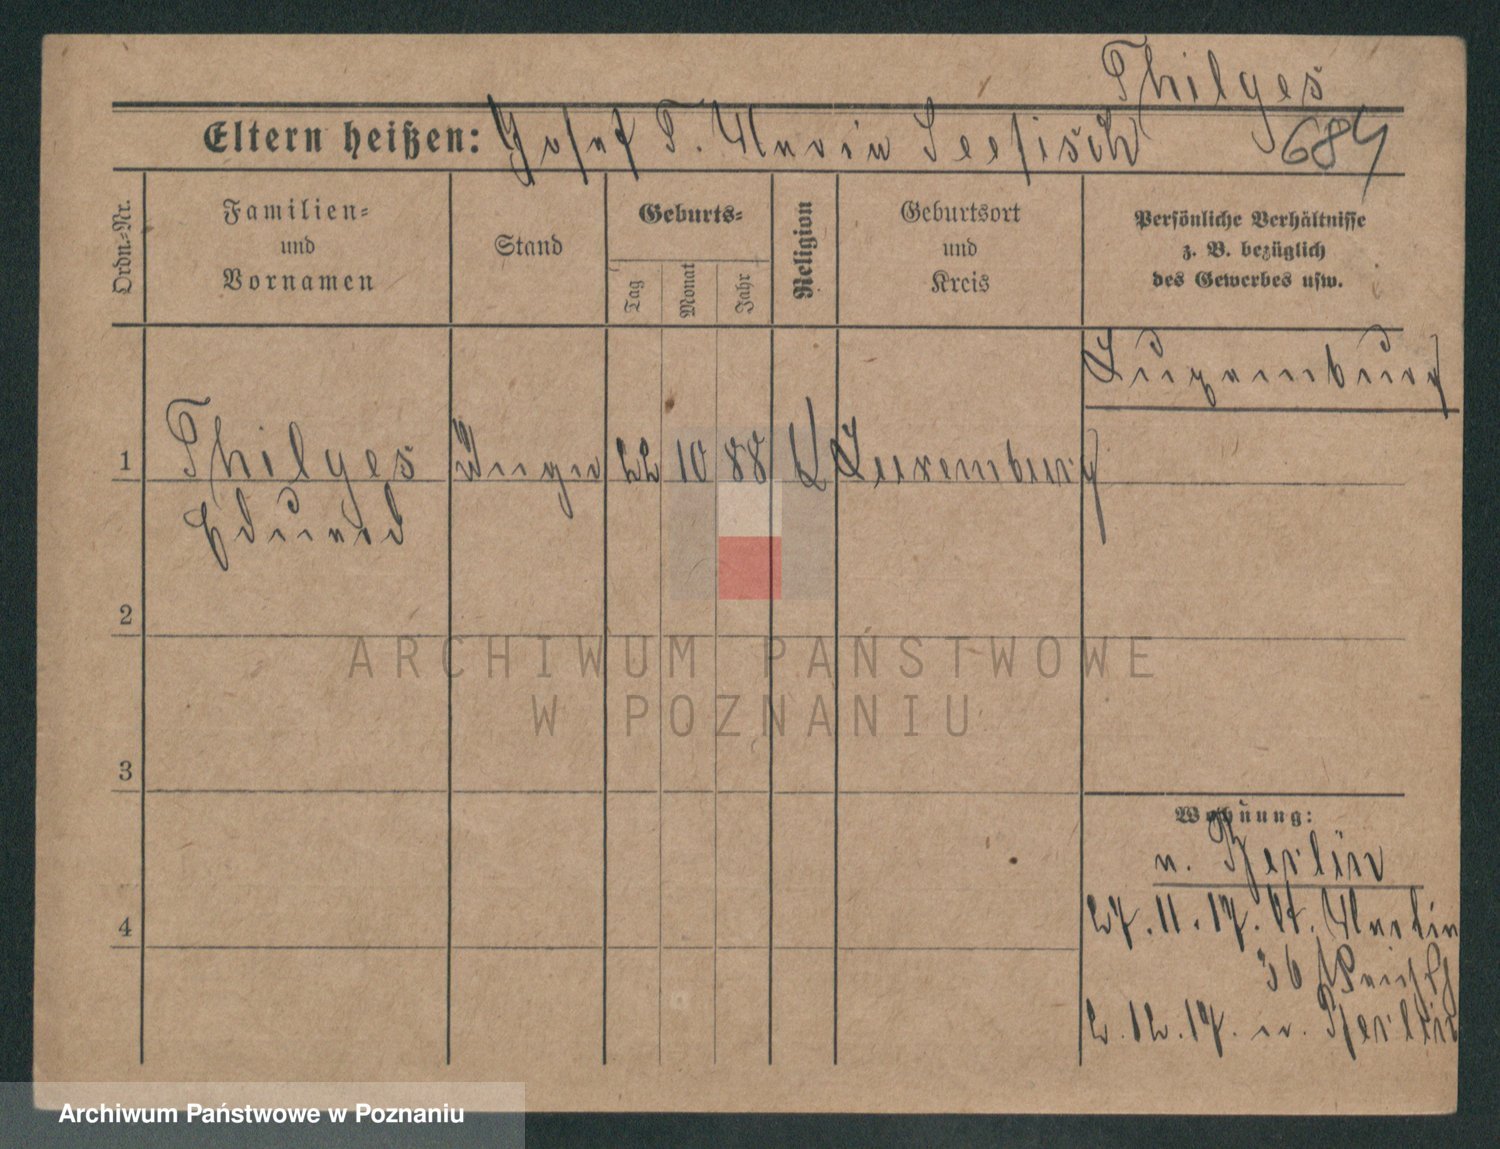 Thilges
Eltern heißen: Josef T. Maria Seefisch 684
Ordn.-Nr.
Familien-
und
Vornamen
Stand
Geburts-
Tag
Monat
Jahr
Religion
Geburtsort
und
Kreis
Persönliche Verhältnisse
z. B. bezüglich
des Gewerbes usw.
Luxemburg
1 Thilges 22 10 88 Luxemburg
Eduard
2
3
4
Wohnung:
n. Berlin
27. 11. 17. St. Martin
36
2. 12. 17. n. Berlin
ARCHIWUM PAŃSTWOWE
W POZNANIU
Archiwum Państwowe w Poznaniu